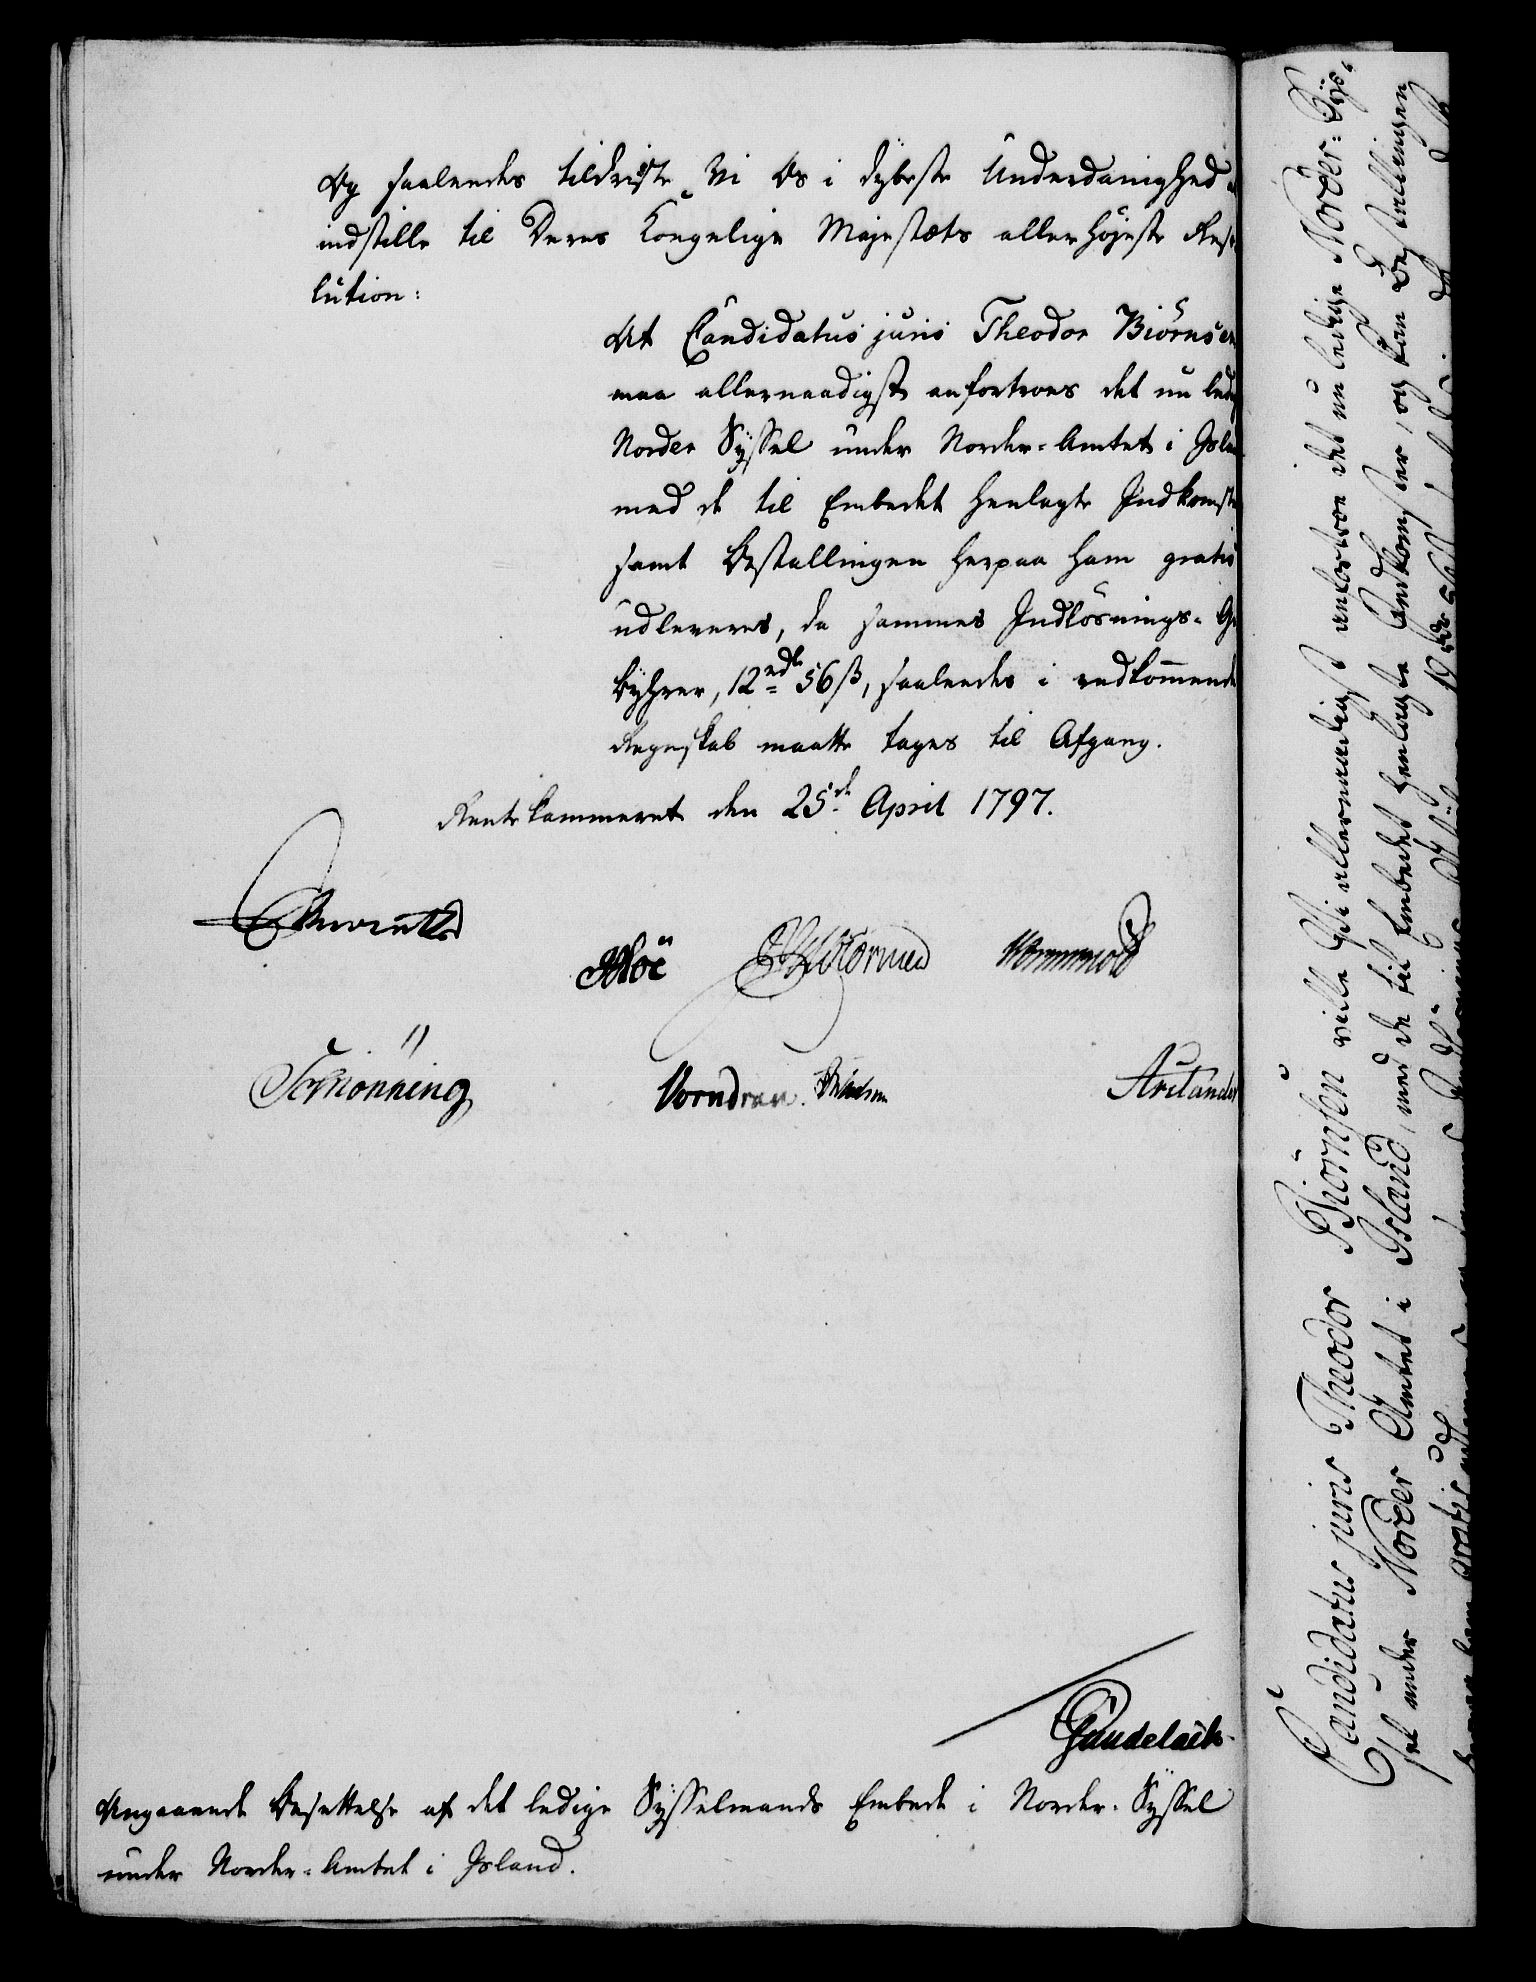 Og saaledes tildriste Vi Os i dybeste Underdanighed at
indstille til Deres Kongelige Majestæts allerhöjeste Reso-
lution:
At Candidatus juris Theodor Biörnsen
maa allernaadigst anfortroes det nu ledig
Norder Syssel under Norder-Amtet i Island
med de til Embedet henlagte Indkomster
samt Bestallingen herpaa ham gratis
udleveres, da sammes Indlösnings-Ge
byhrer, 12 rdlr 56 ß, saaledes i vedkommende
Regnskab maatte tages til Afgang.
Rentekammeret den 25de April 1797.
Schiönning
Vorndran.
Arctander
Gundelach
Angaaende Besættelse af det ledige Sysselmands Embede i Norder-Syssel
under Norder-Amtet i Island.
Candidatus juris Theodor Biörnsen ville Vi allernaadigst anfortroe det nu ledige Norder-Sys-
sel under Norder Amtet i Island, med de til Embedet henlagte Indkomster, og kan Bestallingen
ham gratis